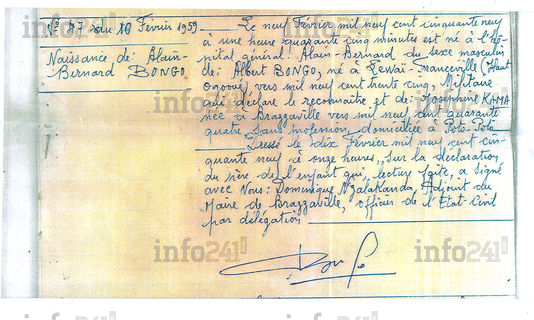 N° 37 du 10 Février 1959
Naissance de: Alain-
Bernard BONGO
Le neuf Février mil neuf cent cinquante neuf
à une heure quarante cinq minutes est né à l'hô-
pital général: Alain-Bernard du sexe masculin
de: Albert BONGO, né à Lewaï-Franceville (Haut
Ogooué) vers mil neuf cent trente cinq, Militaire
qui déclare le reconnaître et de: Joséphine KAMA
née à Brazzaville vers mil neuf cent quarante
quatre sans profession, domiciliée à Poto-Poto
Dressé le dix Février mil neuf cent cin-
quante neuf à onze heures, sur la déclaration
du père de l'enfant qui, lecture faite, a signé
avec Nous: Dominique Nzalakanda, Adjoint du
Maire de Brazzaville, officier de l'Etat-Civil
par délégation
info241
info241
info241
info241
info241
info241